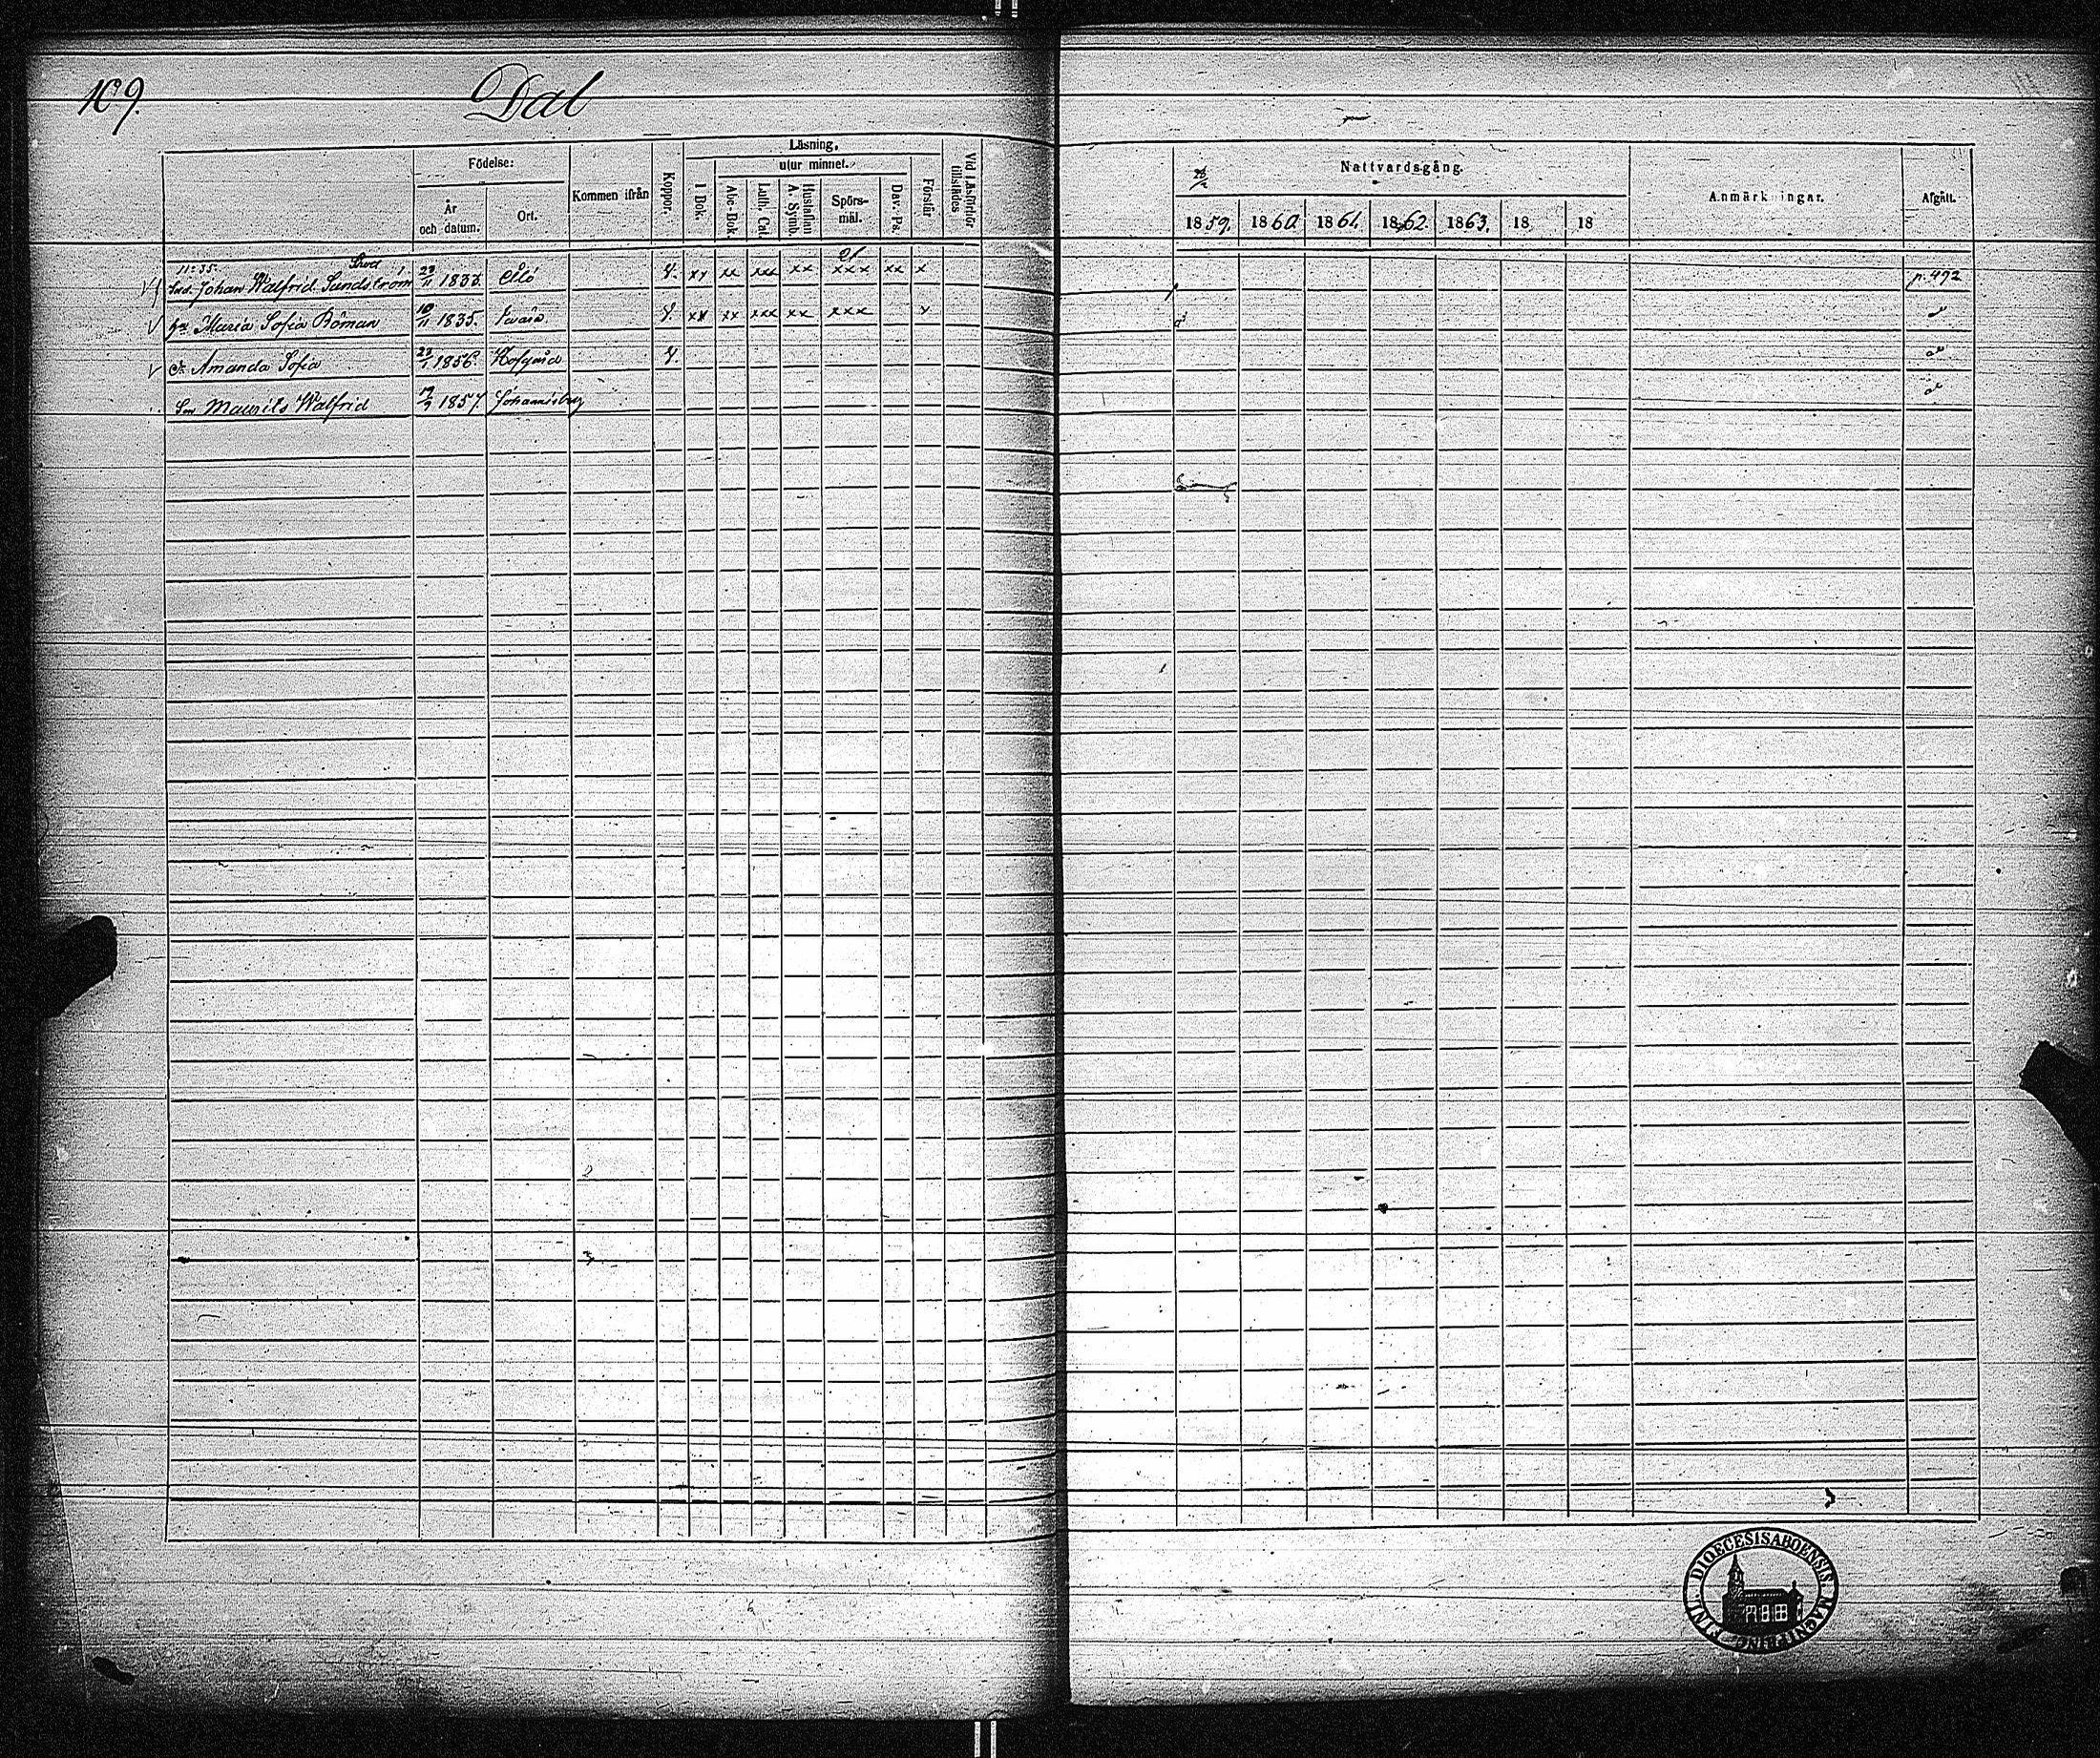 109.
Dal
Födelse:
År och datum.
Ort.
Kommen ifrån
Koppor.
Läsning,
utur minnet.
I Bok.
Abc Bok.
Luth. Cat.
Hustaflan A. Symb.
Spörs-mål.
Dav. Ps.
Förstår
Vid Läsförhör tillstädes
Nattvardsgång.
1859. 1860 1861. 1862. 1863. 18 18
Anmärkningar.
Afgått.
11: 55.
Johan Walfrid Sundström 23/11 1833. v. xx xx xxx xx xxx xx x p. 492
Maria Sofia Böman 10/11 1835. v. xx xx xxx xx xxx x
Amanda Sofia 23/1 1856. v.
Son Maurits Walfrid 1857. Johannisberg
FINL. DIOECESIS ABOENSIS MAGNI